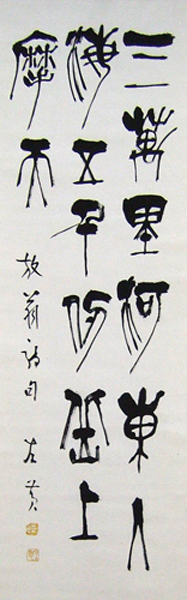 三萬里河東入
海五千仞岳上
摩天
放翁詩句